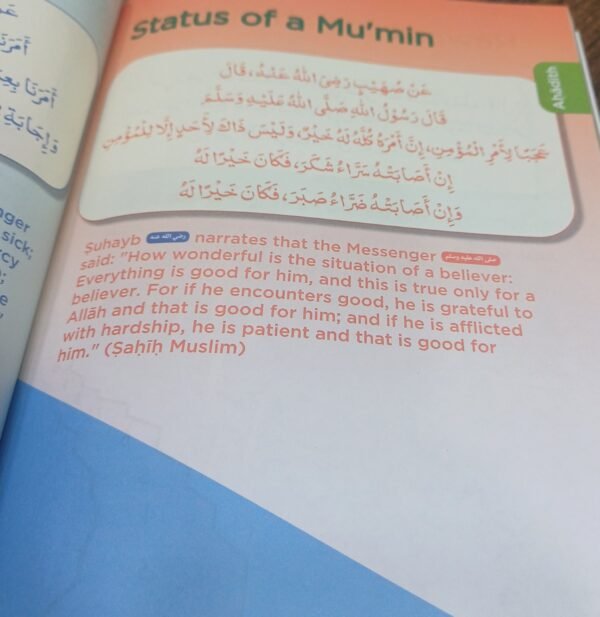 Status of a Mu'min
Aḥādīth
عَنْ صُهَيْبٍ رَضِيَ اللهُ عَنْهُ، قَالَ
قَالَ رَسُوْلُ اللهِ صَلَّى اللهُ عَلَيْهِ وَسَلَّمَ
عَجَبًا لِأَمْرِ الْمُؤْمِنِ، إِنَّ أَمْرَهُ كُلَّهُ لَهُ خَيْرٌ، وَلَيْسَ ذَاكَ لِأَحَدٍ إِلَّا لِلْمُؤْمِنِ
إِنْ أَصَابَتْهُ سَرَّاءُ شَكَرَ، فَكَانَ خَيْرًا لَهُ
وَإِنْ أَصَابَتْهُ ضَرَّاءُ صَبَرَ، فَكَانَ خَيْرًا لَهُ
Ṣuhayb رضي الله عنه narrates that the Messenger صلى الله عليه وسلم
said: "How wonderful is the situation of a believer:
Everything is good for him, and this is true only for a
believer. For if he encounters good, he is grateful to
Allāh and that is good for him; and if he is afflicted
with hardship, he is patient and that is good for
him." (Ṣaḥīḥ Muslim)
أَمَرَنَا بِعِ
وَإِجَابَةِ
sick;